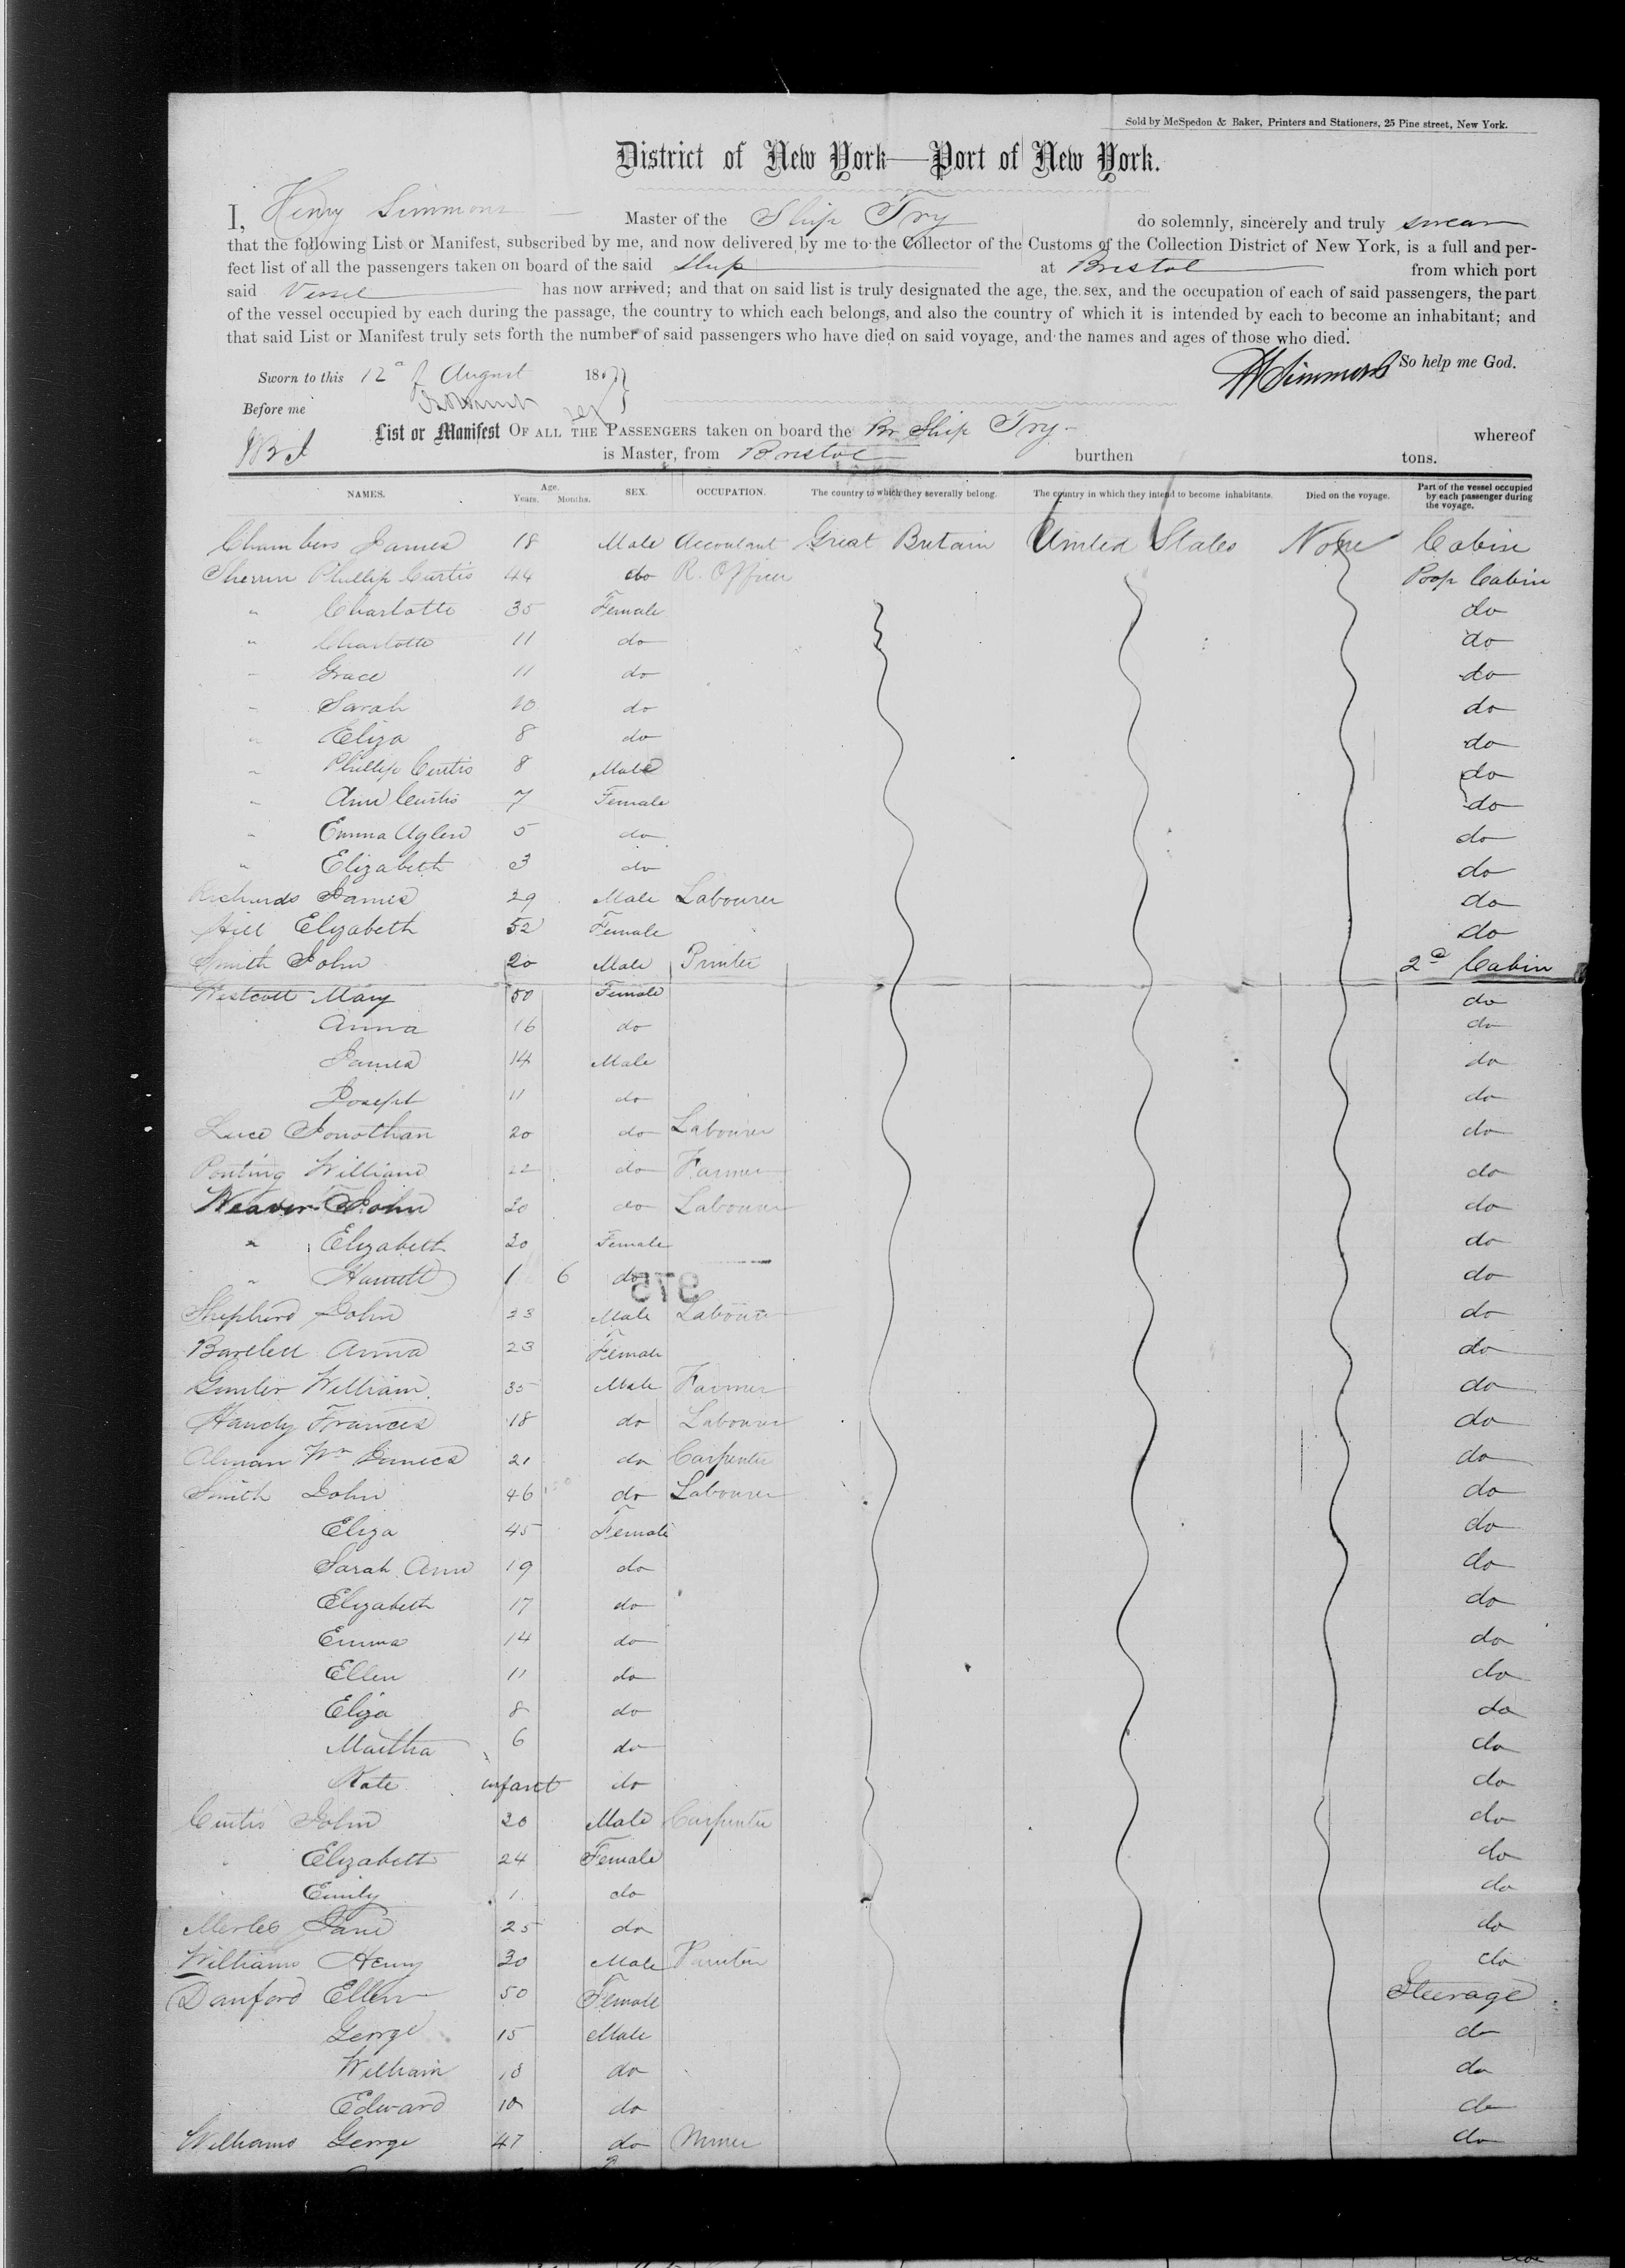 Sold by McSpedon & Baker, Printers and Stationers, 25 Pine street, New York.
District of New York—Port of New York.
I, Henry Simmons Master of the Ship Try do solemnly, sincerely and truly swear
that the following List or Manifest, subscribed by me, and now delivered by me to the Collector of the Customs of the Collection District of New York, is a full and per-
fect list of all the passengers taken on board of the said Ship at Bristol from which port
said Vessel has now arrived; and that on said list is truly designated the age, the sex, and the occupation of each of said passengers, the part
of the vessel occupied by each during the passage, the country to which each belongs, and also the country of which it is intended by each to become an inhabitant; and
that said List or Manifest truly sets forth the number of said passengers who have died on said voyage, and the names and ages of those who died.
So help me God.
Sworn to this 12 of August 18 HSimmons
Before me
List or Manifest OF ALL THE PASSENGERS taken on board the Br Ship Try whereof
is Master, from Bristol burthen tons.
NAMES. Age. Years. Months. SEX. OCCUPATION. The country to which they severally belong. The country in which they intend to become inhabitants. Died on the voyage. Part of the vessel occupied by each passenger during the voyage.
Chambers James 18 Male Accountant Great Britain United States None Cabin
Sherrin Phillip Curtis 44 do R. Officer Poop Cabin
" Charlotte 35 Female do
" Charlotte 11 do do
" Grace 11 do do
" Sarah 10 do do
" Eliza 8 do do
" Phillip Curtis 8 Male do
" Ann Curtis 7 Female do
" Emma 5 do do
" Elizabeth 3 do do
Richards James 29 Male Labourer do
Hill Elizabeth 52 Female do
Smith John 20 Male Printer 2d Cabin
Westcott Mary 50 Female do
Anna 16 do do
James 14 Male do
Joseph 11 do do
Luce Jonathan 20 do Labourer do
Ponting William 22 do Farmer do
Weaver John 20 do Labourer do
" Elizabeth 20 Female do
" Harriett 1 6 do do
575
Shepherd John 23 Male Labourer do
Bartlett Anna 23 Female do
William 35 Male Farmer do
Handy Frances 18 do Labourer do
Alman Wm James 21 do Carpenter do
Smith John 46 do Labourer do
Eliza 45 Female do
Sarah Ann 19 do do
Elizabeth 17 do do
Emma 14 do do
Ellen 11 do do
Eliza 8 do do
Martha 6 do do
Kate infant do do
Curtis John 30 Male Carpenter do
" Elizabeth 24 Female do
" Emily 1 do do
Jane 25 do do
Williams Henry 30 Male do
Danford Ellen 50 Female Steerage
George 15 Male do
William do do
Edward 10 do do
Williams George 47 do Miner do